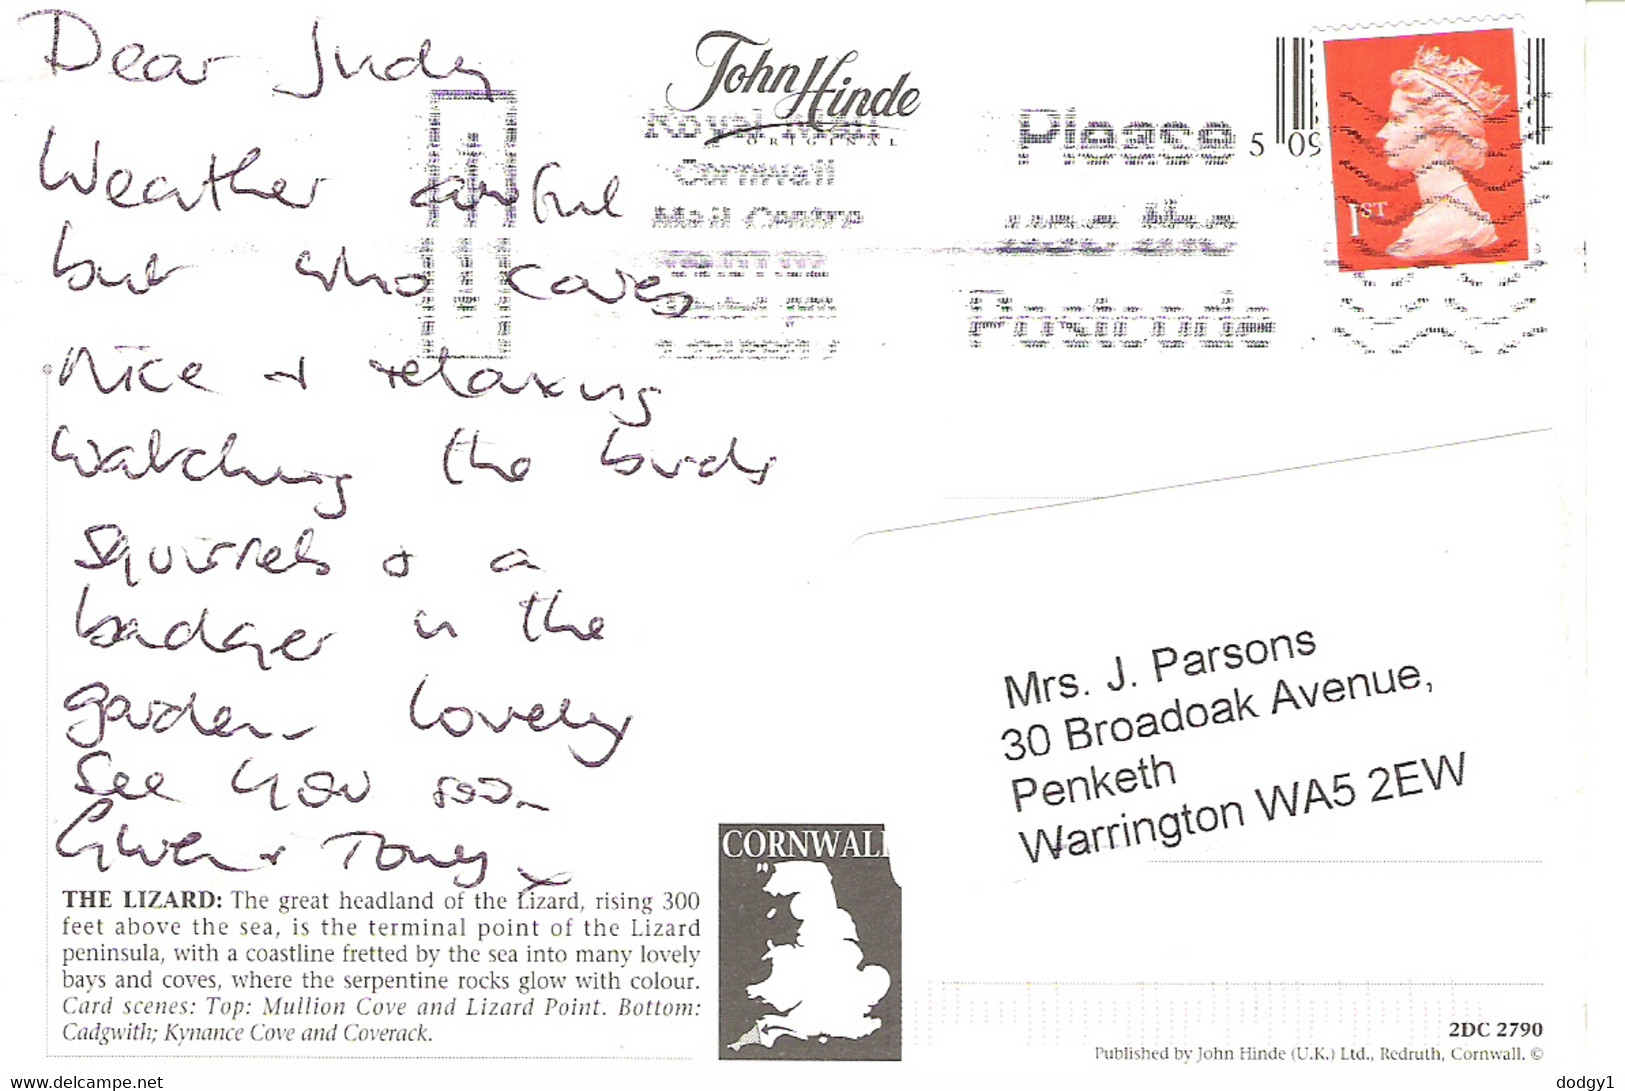 Dear Judy
Weather awful
but who cares
nice + relaxing
watching the birds
squirrels + a
badger in the
garden - lovely
See you soon
Gwen + Tony x
John Hinde
ORIGINAL
Royal Mail
Cornwall
Mail Centre
Please
use the
Postcode
5 09
1ST
Mrs. J. Parsons
30 Broadoak Avenue,
Penketh
Warrington WA5 2EW
THE LIZARD: The great headland of the Lizard, rising 300
feet above the sea, is the terminal point of the Lizard
peninsula, with a coastline fretted by the sea into many lovely
bays and coves, where the serpentine rocks glow with colour.
Card scenes: Top: Mullion Cove and Lizard Point. Bottom:
Cadgwith; Kynance Cove and Coverack.
CORNWALL
2DC 2790
Published by John Hinde (U.K.) Ltd., Redruth, Cornwall. ©
delcampe.net
dodgy1